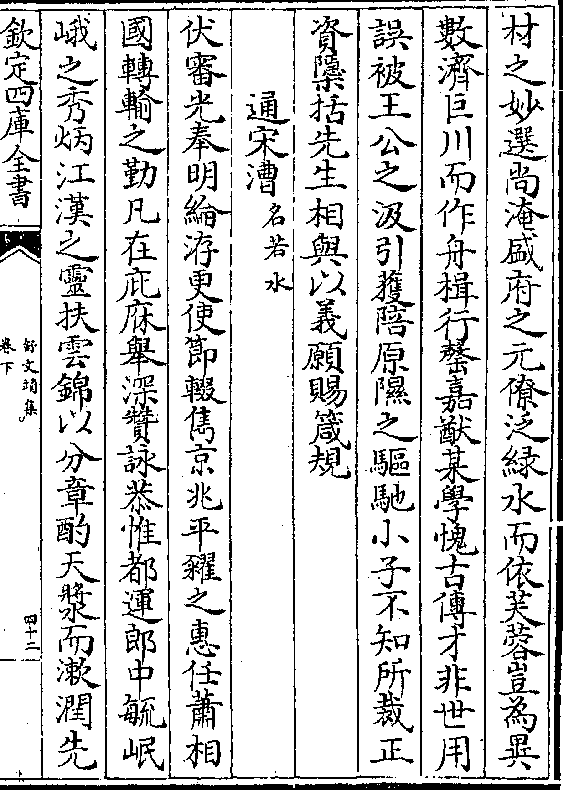 材之妙選尚淹盛府之元僚泛緑水而依芙蓉豈為異
數濟巨川而作舟楫行罄嘉猷某學愧古傳才非世用
誤被王公之汲引獲陪原隰之驅馳小子不知所裁正
資隱括先生相與以義願賜箴規
通宋漕名若水
伏審光奉明綸洊更使節輟雋京兆平糴之惠任蕭相
國轉輸之勤凡在庇庥舉深贊詠恭惟都運郎中毓岷
峨之秀炳江漢之靈扶雲錦以分章酌天漿而漱潤先
欽定四庫全書
舒文靖集
卷下
四十二